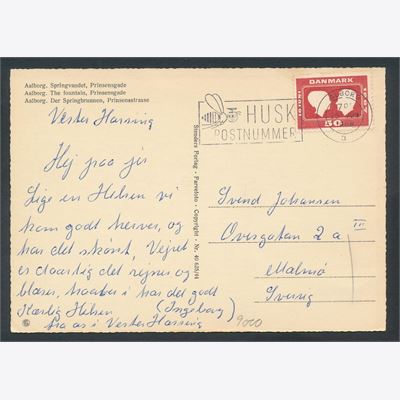 Aalborg. Springvandet, Prinsensgade
Aalborg. The fountain, Prinsensgade
Aalborg. Der Springbrunnen, Prinsensstrasse
Vester Hassing
Hej paa jer
Lige en Hilsen vi
kom godt herover, og
har det skønt, Vejret
er daarlig det rejner og
blæser, haaber i har det godt
Kærlig Hilsen (Ingeborg)
fra os i Vester Hassing
Stenders Forlag - Farvefoto - Copyright - Nr. 40 635/44
HUSK
POSTNUMMER
DANMARK
10 JUNI
1967
50
Svend Johansen
Övergatan 2 a III
Malmö
Sverig
9000